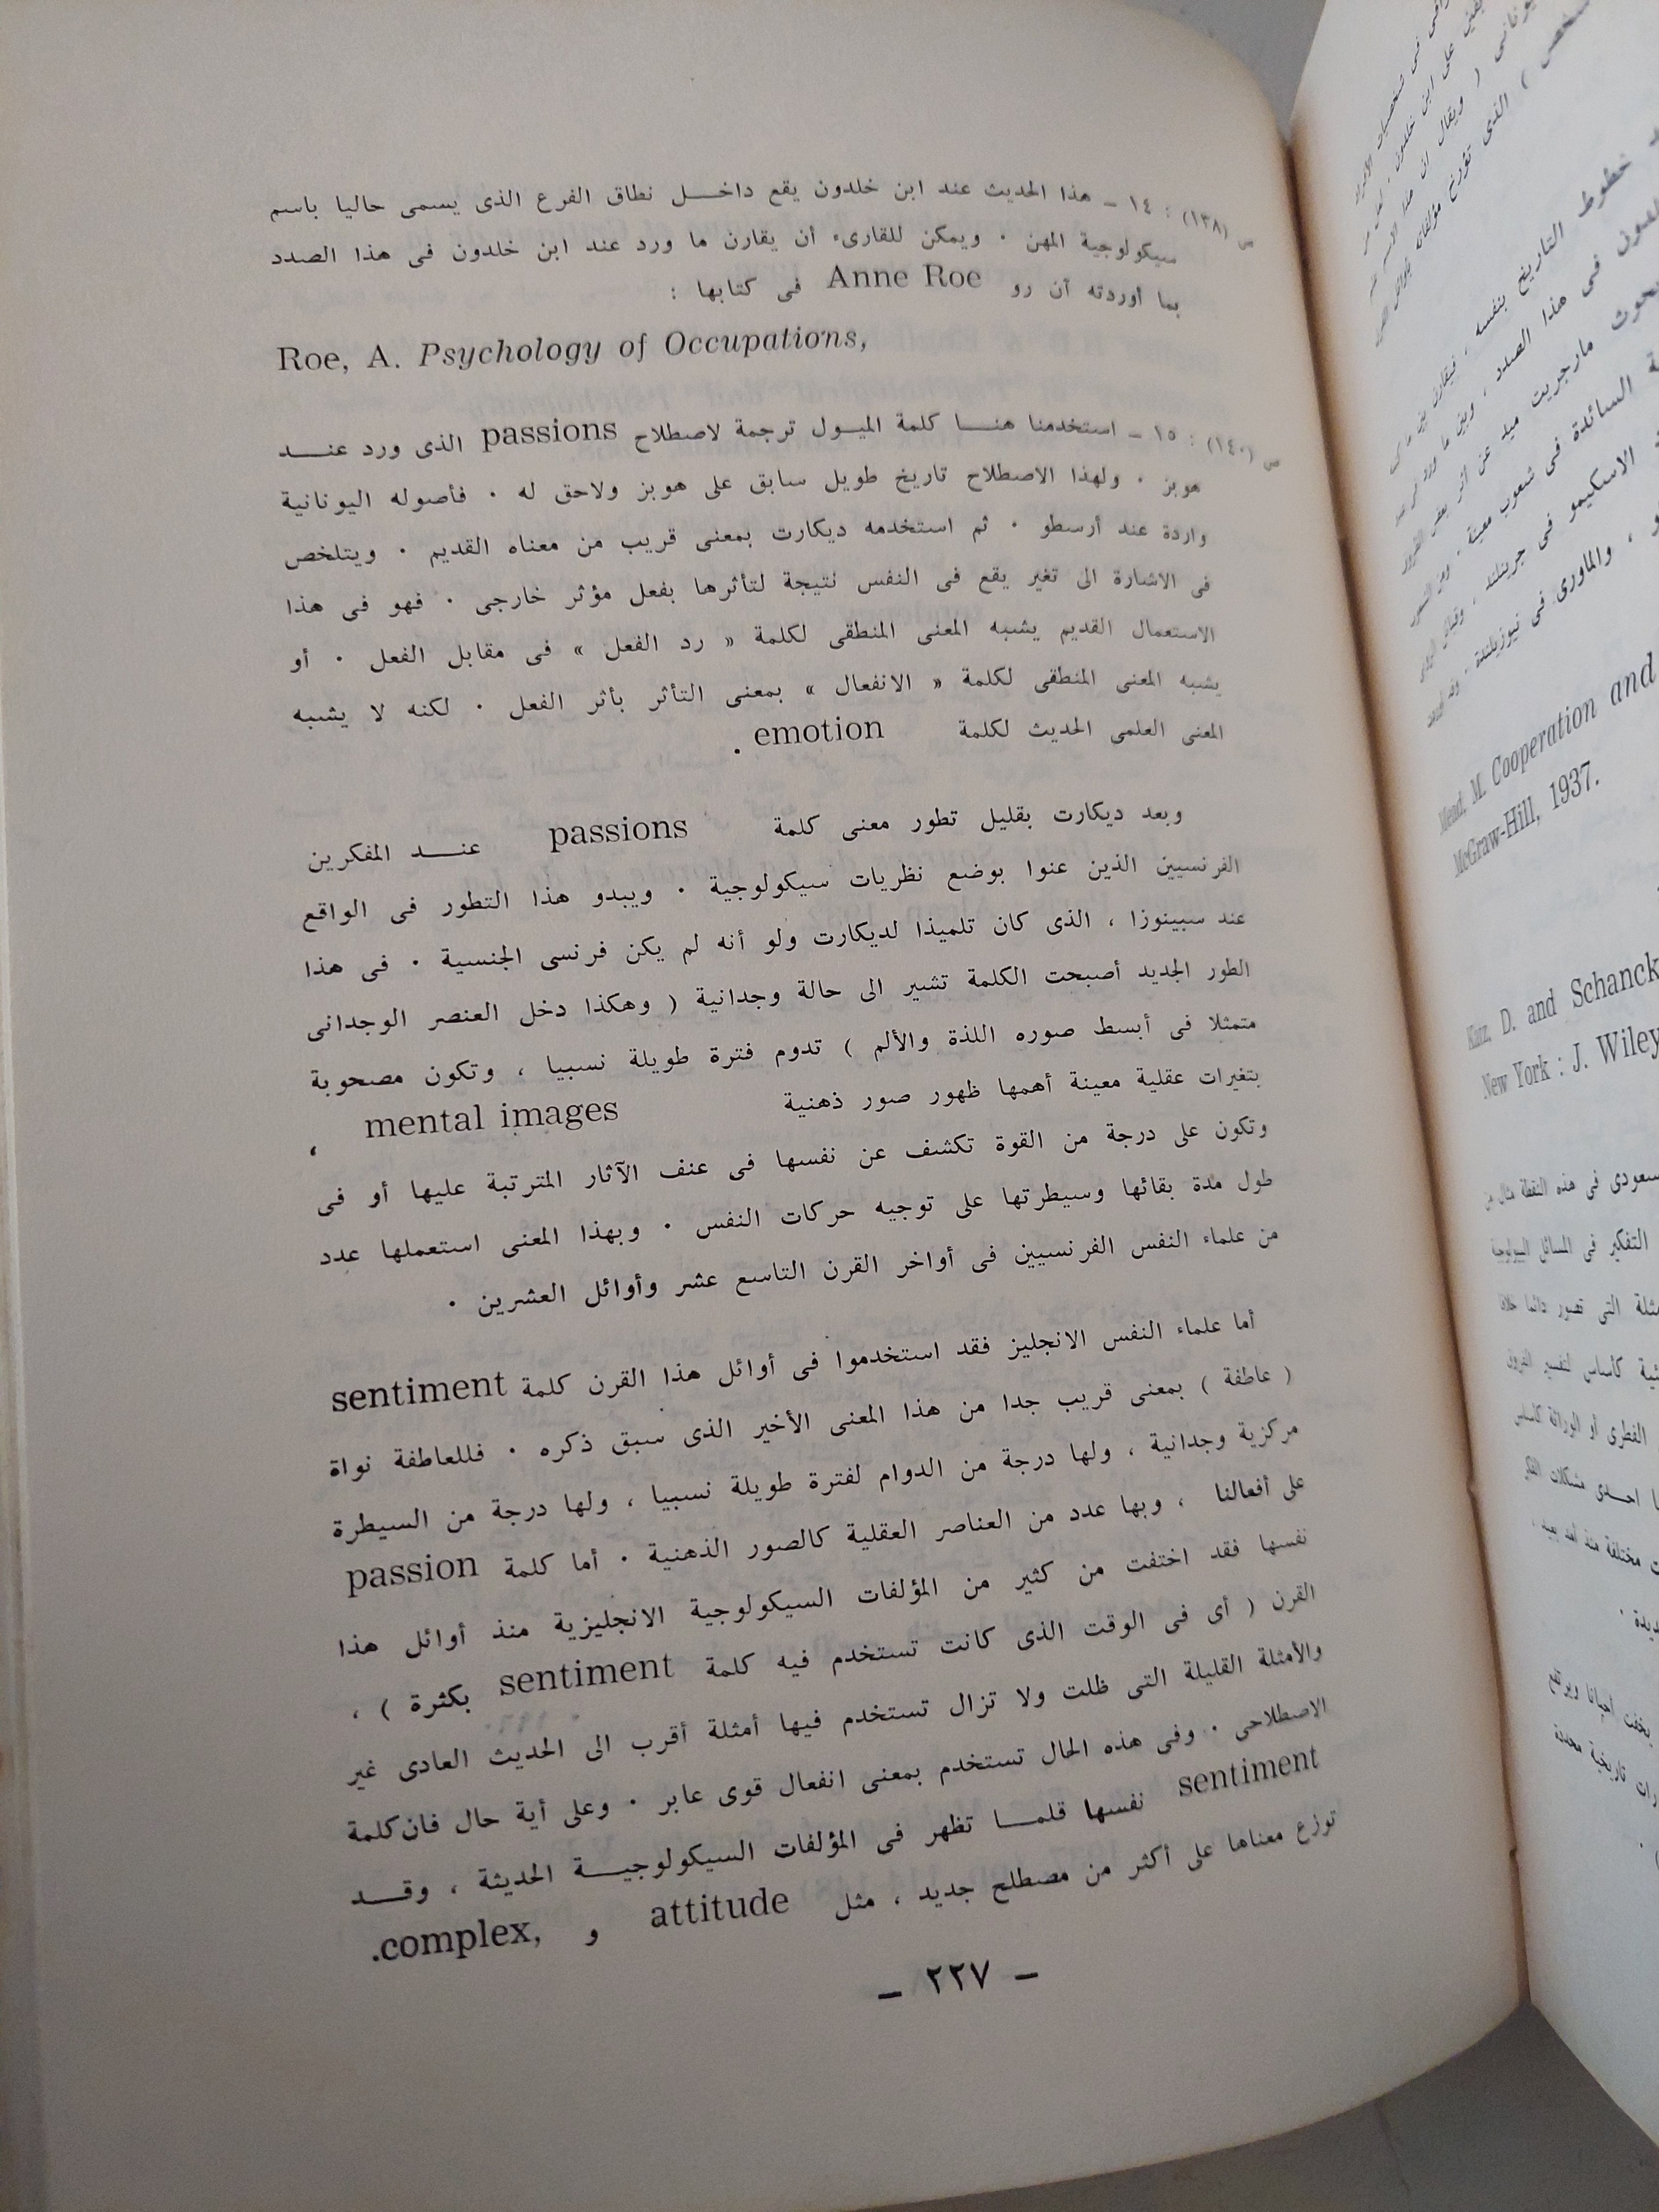 ص (١٣٨) : ١٤ ــ هذا الحديث عند ابن خلدون يقع داخـــل نطاق الفرع الذى يسمى حاليا باسم
سيكولوجية المهن ٠ ويمكن للقارىء أن يقارن ما ورد عند ابن خلدون فى هذا الصدد
بما أوردته آن رو Anne Roe فى كتابها :
Roe, A. Psychology of Occupations,
ص (١٤٠) : ١٥ ــ استخدمنا هنـــا كلمة الميــول ترجمة لاصطلاح passions الذى ورد عنـــد
هوبز ٠ ولهذا الاصطلاح تاريخ طويل سابق على هوبز ولاحق له ٠ فأصوله اليونانية
واردة عند أرسطو ٠ ثم استخدمه ديكارت بمعنى قريب من معناه القديم ٠ ويتلخص
فى الاشارة الى تغير يقع فى النفس نتيجة لتأثرها بفعل مؤثر خارجى ٠ فهو فى هذا
الاستعمال القديم يشبه المعنى المنطقى لكلمة « رد الفعل » فى مقابل الفعل ٠ أو
يشبه المعنى المنطقى لكلمة « الانفعال » بمعنى التأثر بأثر الفعل ٠ لكنه لا يشبه
المعنى العلمى الحديث لكلمة emotion .
وبعد ديكارت بقليل تطور معنى كلمة passions عنـــد المفكرين
الفرنسيين الذين عنوا بوضع نظريات سيكولوجية ٠ ويبدو هذا التطور فى الواقع
عند سبينوزا ، الذى كان تلميذا لديكارت ولو أنه لم يكن فرنسى الجنسية ٠ فى هذا
الطور الجديد أصبحت الكلمة تشير الى حالة وجدانية ( وهكذا دخل العنصر الوجدانى
متمثلا فى أبسط صوره اللذة والألم ) تدوم فترة طويلة نسبيا ، وتكون مصحوبة
بتغيرات عقلية معينة أهمها ظهور صور ذهنية mental images ،
وتكون على درجة من القوة تكشف عن نفسها فى عنف الآثار المترتبة عليها أو فى
طول مدة بقائها وسيطرتها على توجيه حركات النفس ٠ وبهذا المعنى استعملها عدد
من علماء النفس الفرنسيين فى أواخر القرن التاسع عشر وأوائل العشرين ٠
أما علماء النفس الانجليز فقد استخدموا فى أوائل هذا القرن كلمة sentiment
( عاطفة ) بمعنى قريب جدا من هذا المعنى الأخير الذى سبق ذكره ٠ فللعاطفة نواة
مركزية وجدانية ، ولها درجة من الدوام لفترة طويلة نسبيا ، ولها درجة من السيطرة
على أفعالنا ، وبها عدد من العناصر العقلية كالصور الذهنية ٠ أما كلمة passion
نفسها فقد اختفت من كثير من المؤلفات السيكولوجية الانجليزية منذ أوائل هذا
القرن ( أى فى الوقت الذى كانت تستخدم فيه كلمة sentiment بكثرة ) ،
والأمثلة القليلة التى ظلت ولا تزال تستخدم فيها أمثلة أقرب الى الحديث العادى غير
الاصطلاحى ٠ وفى هذه الحال تستخدم بمعنى انفعال قوى عابر ٠ وعلى أية حال فان كلمة
sentiment نفسها قلمـــا تظهر فى المؤلفات السيكولوجيـــة الحديثة ، وقـــد
توزع معناها على أكثر من مصطلح جديد ، مثل attitude و complex,.
ــ ٢٢٧ ــ
خطوط التاريخ بنفسه
فى هذا الصدد
مارجريت ميد عن أثر بعض
السائدة فى شعوب معينة
الاسكيمو فى جرينلند
والماورى فى نيوزيلندة
Mead, M. Cooperation and
McGraw-Hill, 1937.
Katz, D. and Schanck
New York : J. Wiley
فى هذه النقطة مثال من
التفكير فى المسائل البيولوجية
التى تصور دائما خلافا
كأساس لتفسير الفروق
الفطرى أو الوراثة كأساس
احـــدى مشكلات الفكر
مختلفة منذ أمد بعيد
يخفت أحيانا ويرتفع
تاريخية محددة